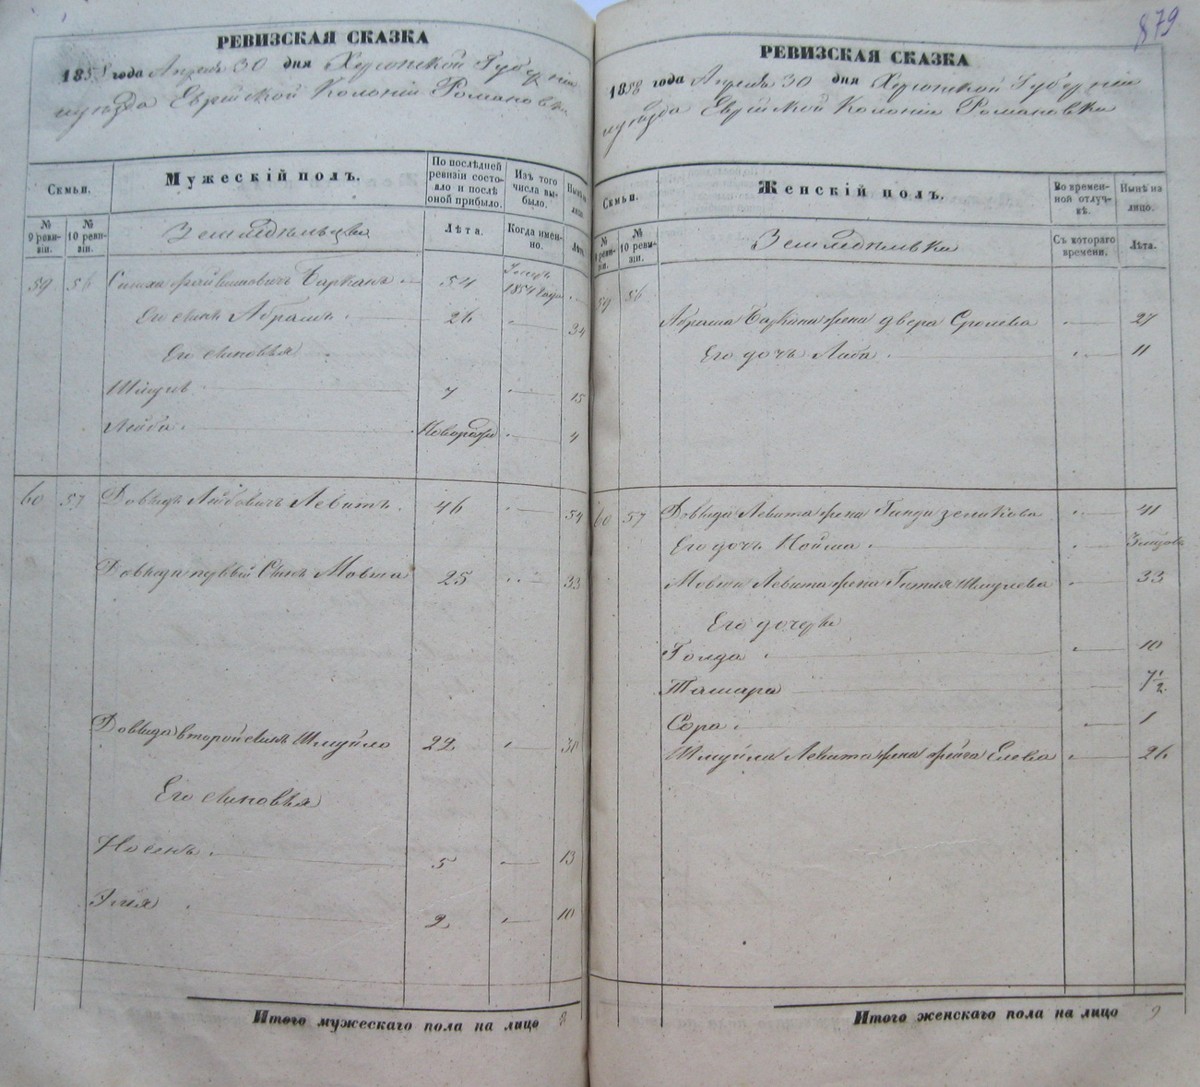 РЕВИЗСКАЯ СКАЗКА
1858 года Апреля 30 дня Херсонской Губерніи
и уѣзда Еврейской Колоніи Романовки
Семьи.
Мужескій полъ.
По послѣдней ревизіи состояло и послѣ оной прибыло.
Изъ того числа выбыло.
Нынѣ на лицо.
№ 9 ревизіи.
№ 10 ревизіи.
Земледѣльцы
Лѣта.
Когда именно.
Лѣта.
59 56 Барканъ 54 1854 года
Его сынъ Абрамъ 26 34
Его сыновья
Шмуль 7 15
Лейба Новорожд 4
60 57 Довидъ Лейбовичъ Левитъ 46 54
Довида первый Сынъ Мовша 25 33
Довида второй сынъ Шмуйло 22 30
Его сыновья
Носенъ 5 13
Элия 2 10
Итого мужескаго пола на лицо 8
879
РЕВИЗСКАЯ СКАЗКА
1858 года Апреля 30 дня Херсонской Губерніи
и уѣзда Еврейской Колоніи Романовки
Семьи.
Женскій полъ.
Во временной отлучкѣ.
Нынѣ на лицо.
№ 9 ревизіи.
№ 10 ревизіи.
Земледѣлки
Съ котораго времени.
Лѣта.
59 56
Абрама Баркана жена Двера Сролева 27
Его дочь Либа 11
60 57 Довида Левита жена Гинда Зеликова 41
Его дочь Нойма
Мовши Левита жена Гитля Шмулева 33
Его дочери
Голда 10
Тамара 7 1/2
Сора 1
Шмуйла Левита жена Фейга Елева 26
Итого женскаго пола на лицо 9